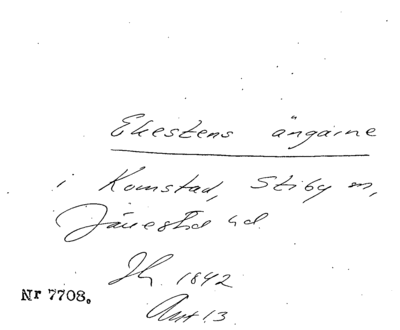 Ekestens ängarne
i Komstad, Stiby sn,
Järrestad hd.
Jh 1842
Nr 7708.
Akt 13